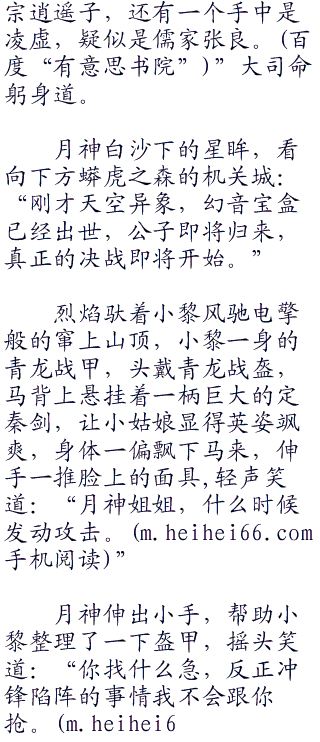 宗逍遥子，还有一个手中是
凌虚，疑似是儒家张良。(百
度“有意思书院”)”大司命
躬身道。
月神白沙下的星眸，看
向下方蟒虎之森的机关城：
“刚才天空异象，幻音宝盒
已经出世，公子即将归来，
真正的决战即将开始。”
烈焰驮着小黎风驰电擎
般的窜上山顶，小黎一身的
青龙战甲，头戴青龙战盔，
马背上悬挂着一柄巨大的定
秦剑，让小姑娘显得英姿飒
爽，身体一偏飘下马来，伸
手一推脸上的面具,轻声笑
道：“月神姐姐，什么时候
发动攻击。(m.heihei66.com
手机阅读)”
月神伸出小手，帮助小
黎整理了一下盔甲，摇头笑
道：“你找什么急，反正冲
锋陷阵的事情我不会跟你
抢。(m.heihei6